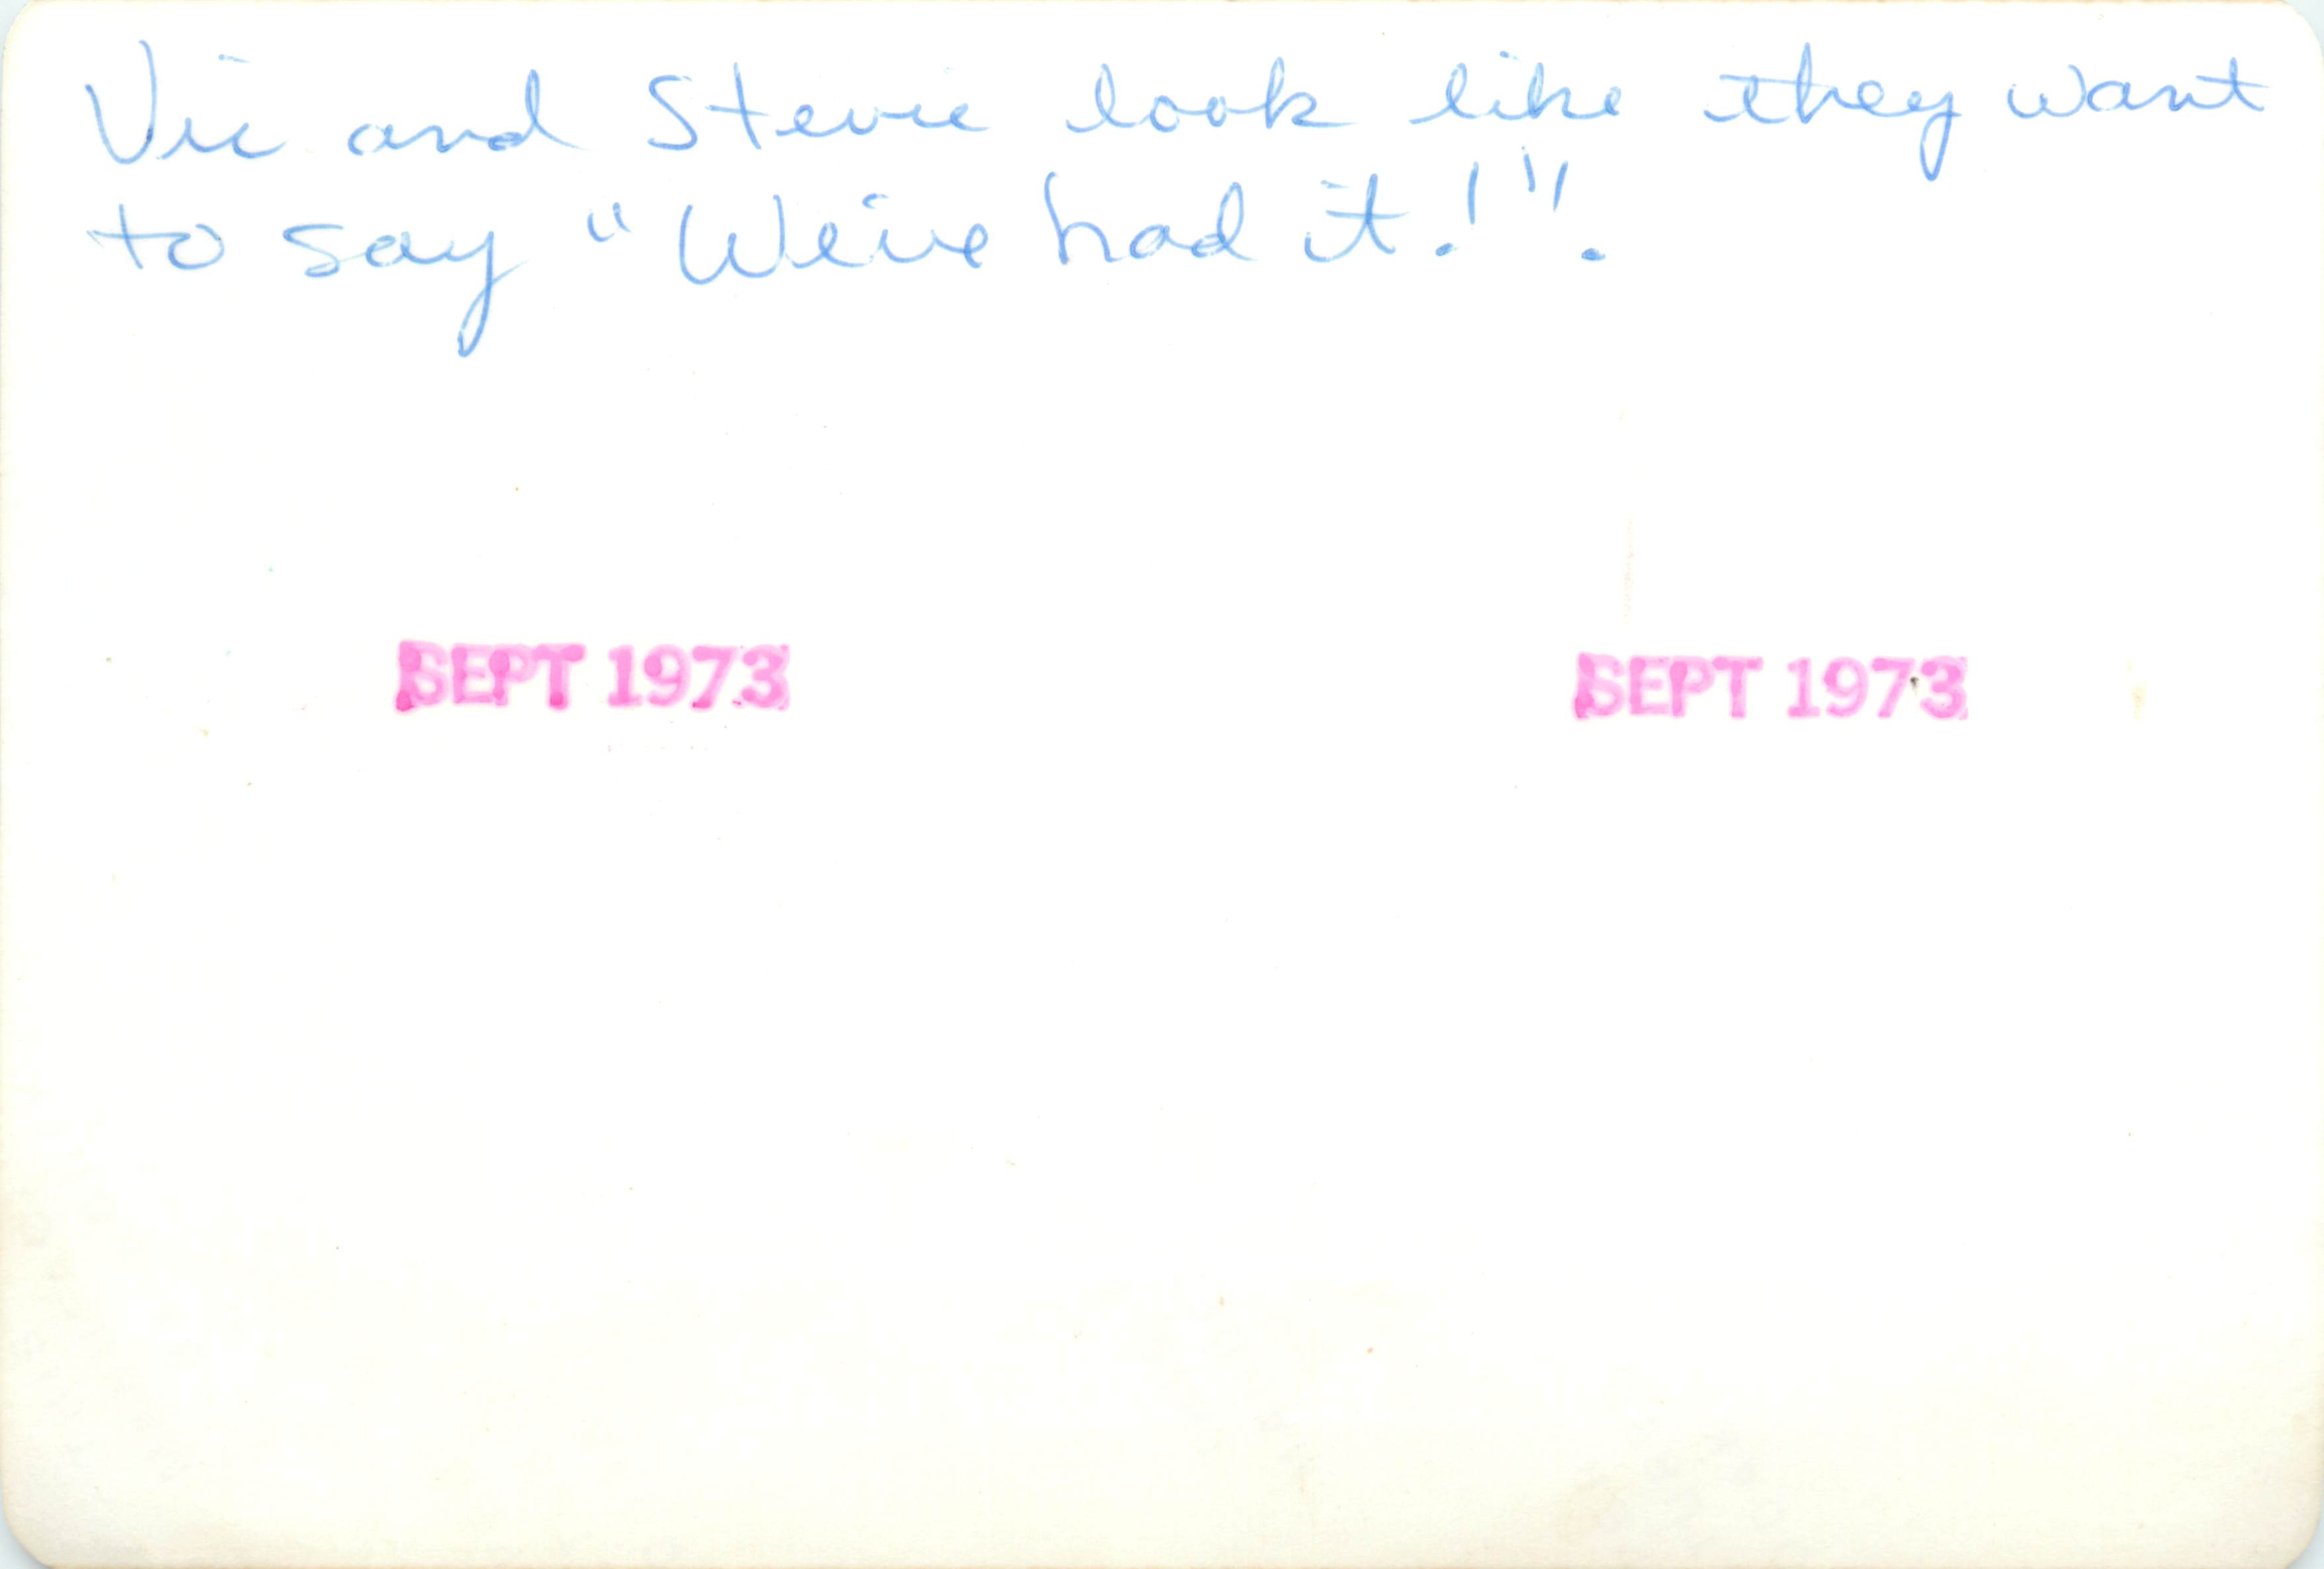 Vic and Stevie look like they want
to say "We've had it!".
SEPT 1973 SEPT 1973